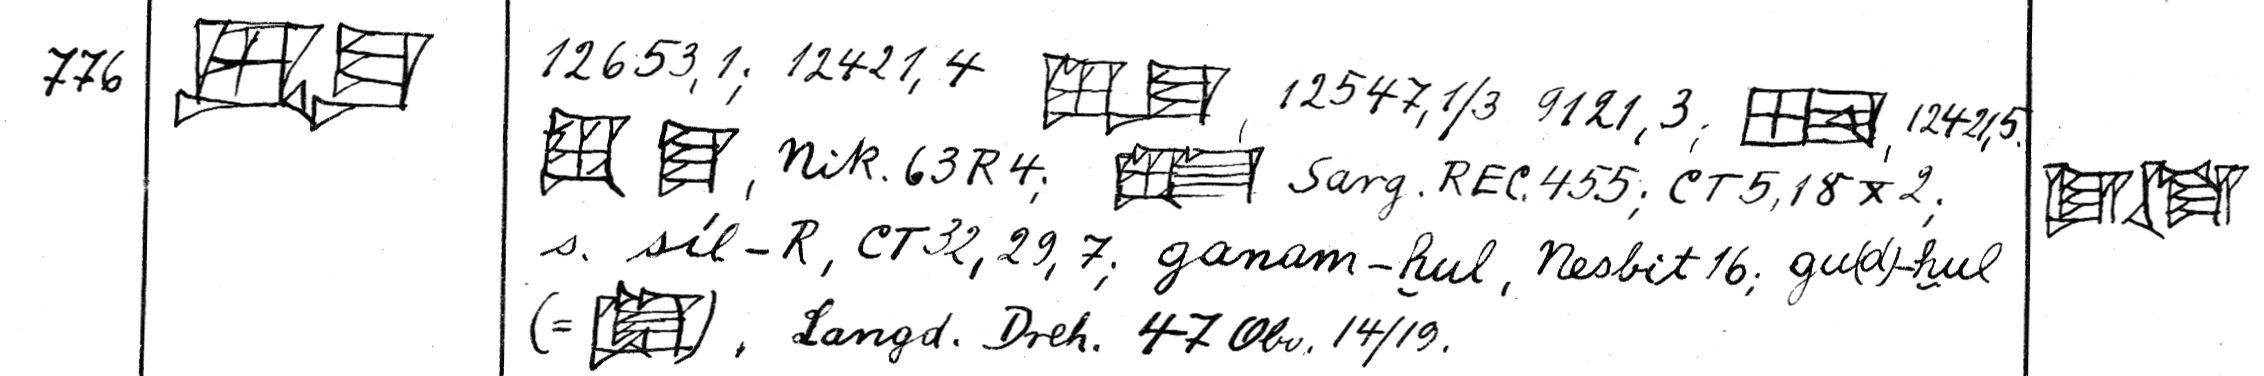 776 12653,1; 12421,4 , 12547,1/3 9121,3; , 12421,5.
, Nik. 63 R 4; Sarg. REC. 455; CT 5, 18 x 2;
s. síl-R, CT 32, 29, 7; ganam-ḫul, Nesbit 16; gu(d)-ḫul
(= ), Langd. Dreh. 47 Obv. 14/19.